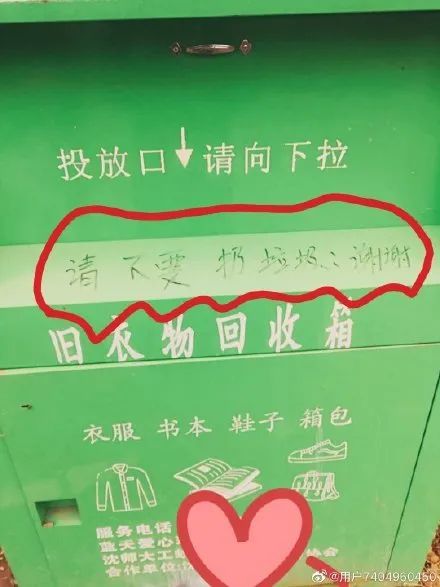 投放口↓请向下拉
请不要扔垃圾::谢谢
旧衣物回收箱
衣服 书本 鞋子 箱包
服务电话
蓝天爱心
沈师大工
合作单位: 协会
@用户7404960450